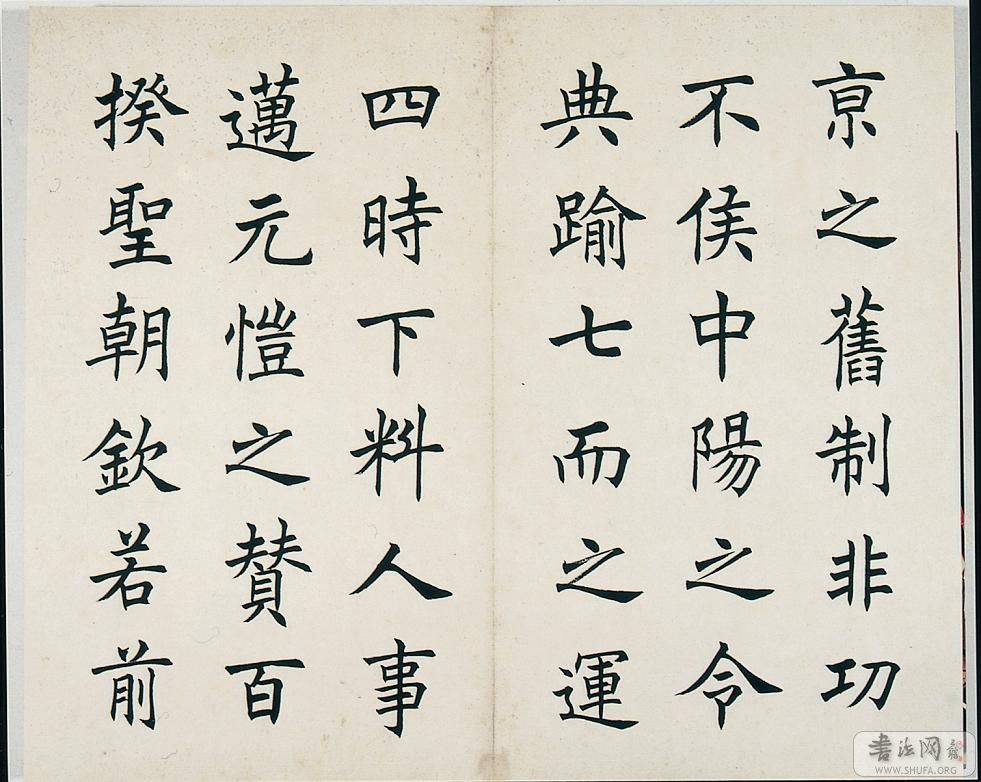 亰之舊制非功
不侯中陽之令
典踰七而之運
四時下料人事
邁元愷之賛百
揆聖朝欽若前
書法网
WWW.SHUFA.ORG